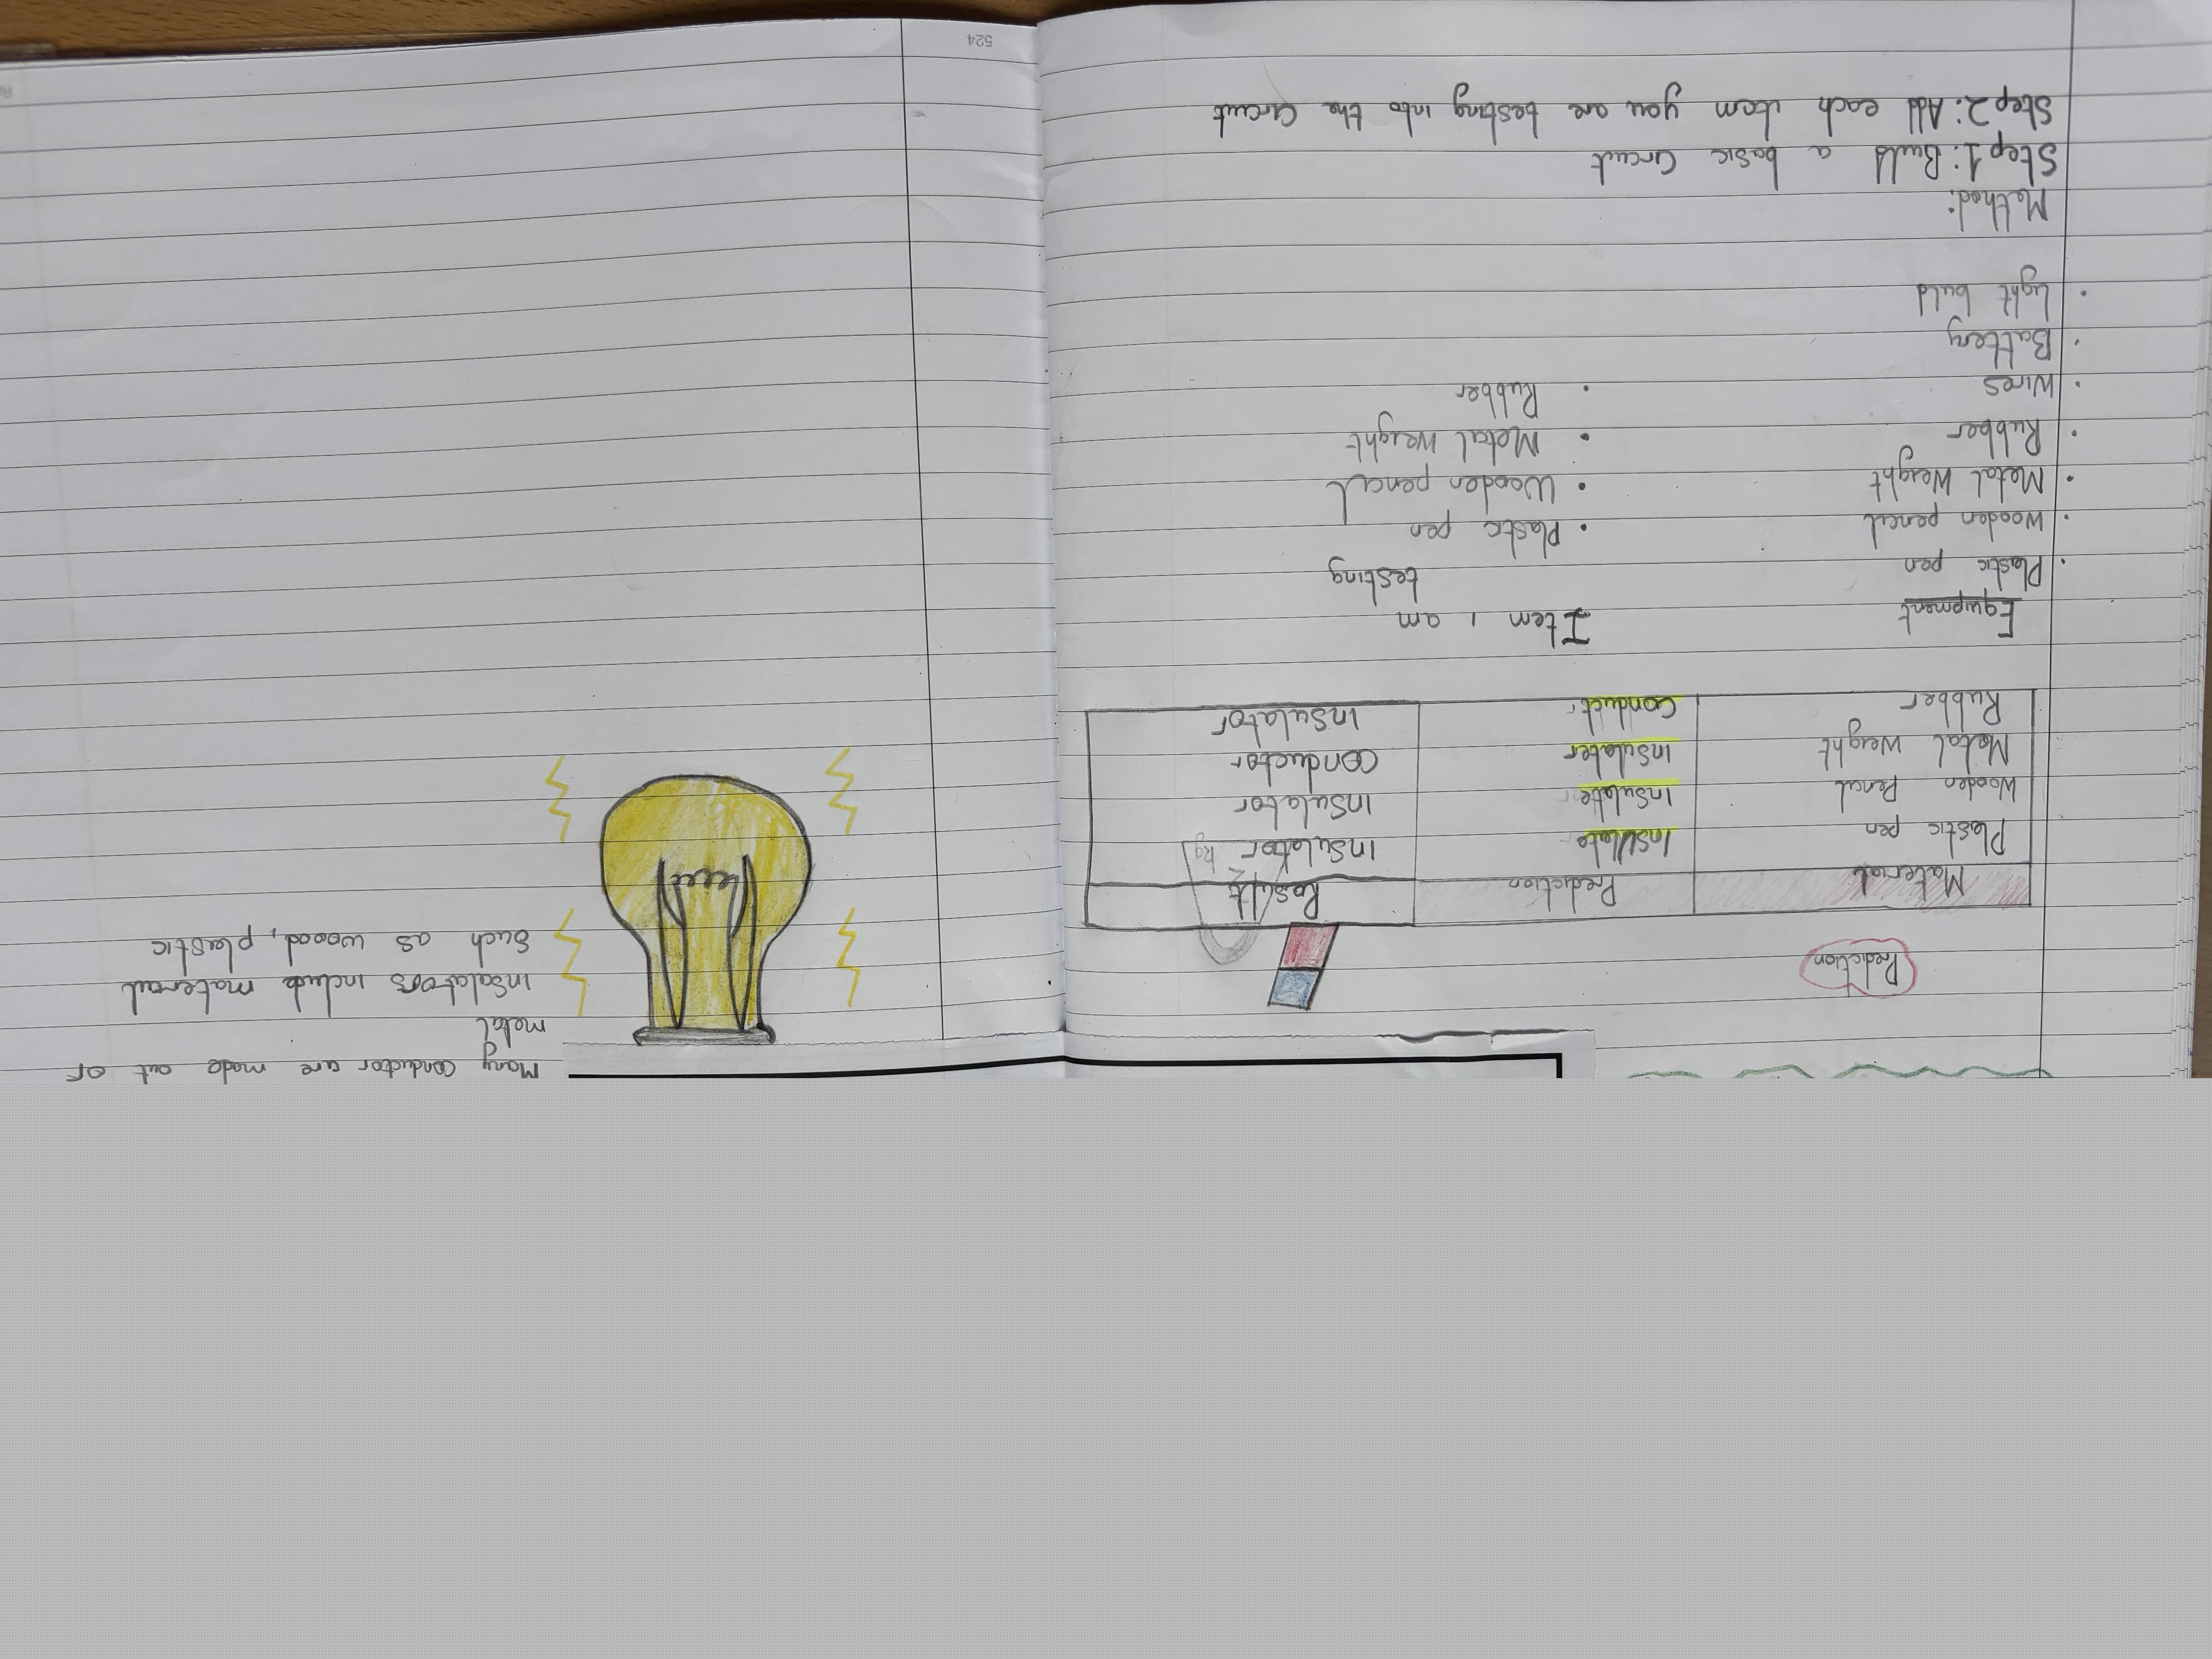 Prediction
Material Prediction Result
Plastic pen Insulate Insulator
Wooden Pencil Insulate Insulator
Metal Weight Insulater conductor
Rubber Conduct Insulator
Kg
Equipment Item I am
testing
• Plastic pen • Plastic pen
• Wooden pencil • Wooden pencil
• Metal Weight • Metal Weight
• Rubber • Rubber
• Wires
• Battery
• Light buld
Method:
Step 1: Build a basic Circuit
Step 2: Add each item you are testing into the Circuit
Many conductor are made out of
metal
Insalators include material
such as woood, plastic
524